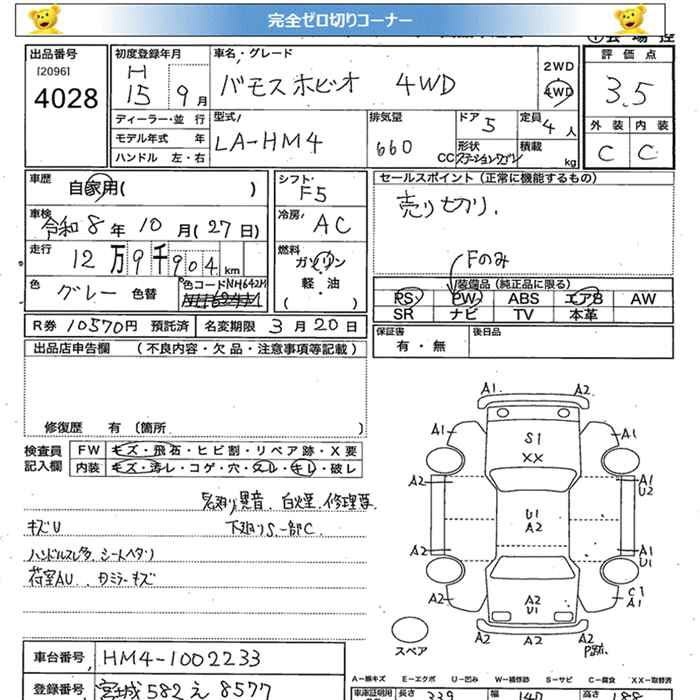 完全ゼロ切りコーナー
出品番号
[2096]
4028
初度登録年月
H
15 9月
車名・グレード
バモスホビオ 4WD
2WD
4WD
評価点
3.5
外装 内装
C C
ディーラー・並行
モデル年式 年
ハンドル 左・右
型式
LA-HM4
排気量
660 CC
ドア 5
形状
ステーションワゴン
定員 4人
積載 kg
車歴
自家用( )
車検
令和8年10月(27日)
走行
12万9千904 km
色 グレー 色替
色コード NH642M
シフト
F5
冷房
AC
燃料
ガソリン
軽・油
( )
セールスポイント(正常に機能するもの)
売り切り.
Fのみ
装備品(純正品に限る)
PS PW ABS エアB AW
SR ナビ TV 本革
R券 10570円 預託済 名変期限 3月20日
保証書
有・無
後日品
出品店申告欄 (不良内容・欠品・注意事項等記載)
修復歴 有(箇所 )
検査員
記入欄
FW キズ・飛石・ヒビ割・リペア跡・X要
内装 キズ・汚レ・コゲ・穴・スレ・キレ・破レ
異音. 白煙. 修理要
キズU 下廻りS. 一部C.
ハンドルスレ多. シートヘタリ
荷室AU. ミラーキズ
A1 A2
A1 S1 A1
XX
A2 A1
U2
U1
A2
A2 A1
U1
A2 A2
U1
C1
A1
A2 A2 A2
スペア
車台番号 HM4-1002233
登録番号 宮城 582 え 8577
A-線キズ E-エクボ U-凹み W-補修跡 S-サビ C-腐食 XX-取替済
車庫証明用 長さ 339 140 高さ 188